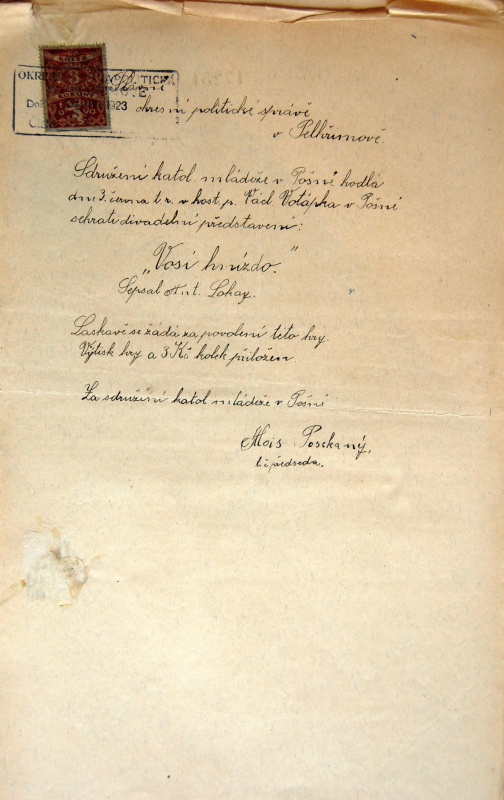 Slavné
okresní politické správě
v Pelhřimově.
Sdružení katol. mládeže v Pošné hodlá
dne 3. června t. r. v host. p. Václ. Votápka v Pošné
sehrati divadelní představení:
„Vosí hnízdo."
Sepsal Ant. Lokay.
Laskavě se žádá za povolení této hry.
Výtisk hry a 3 Kč kolek přiložen.
Za sdružení katol mládeže v Pošné
Alois
t. č. předseda.